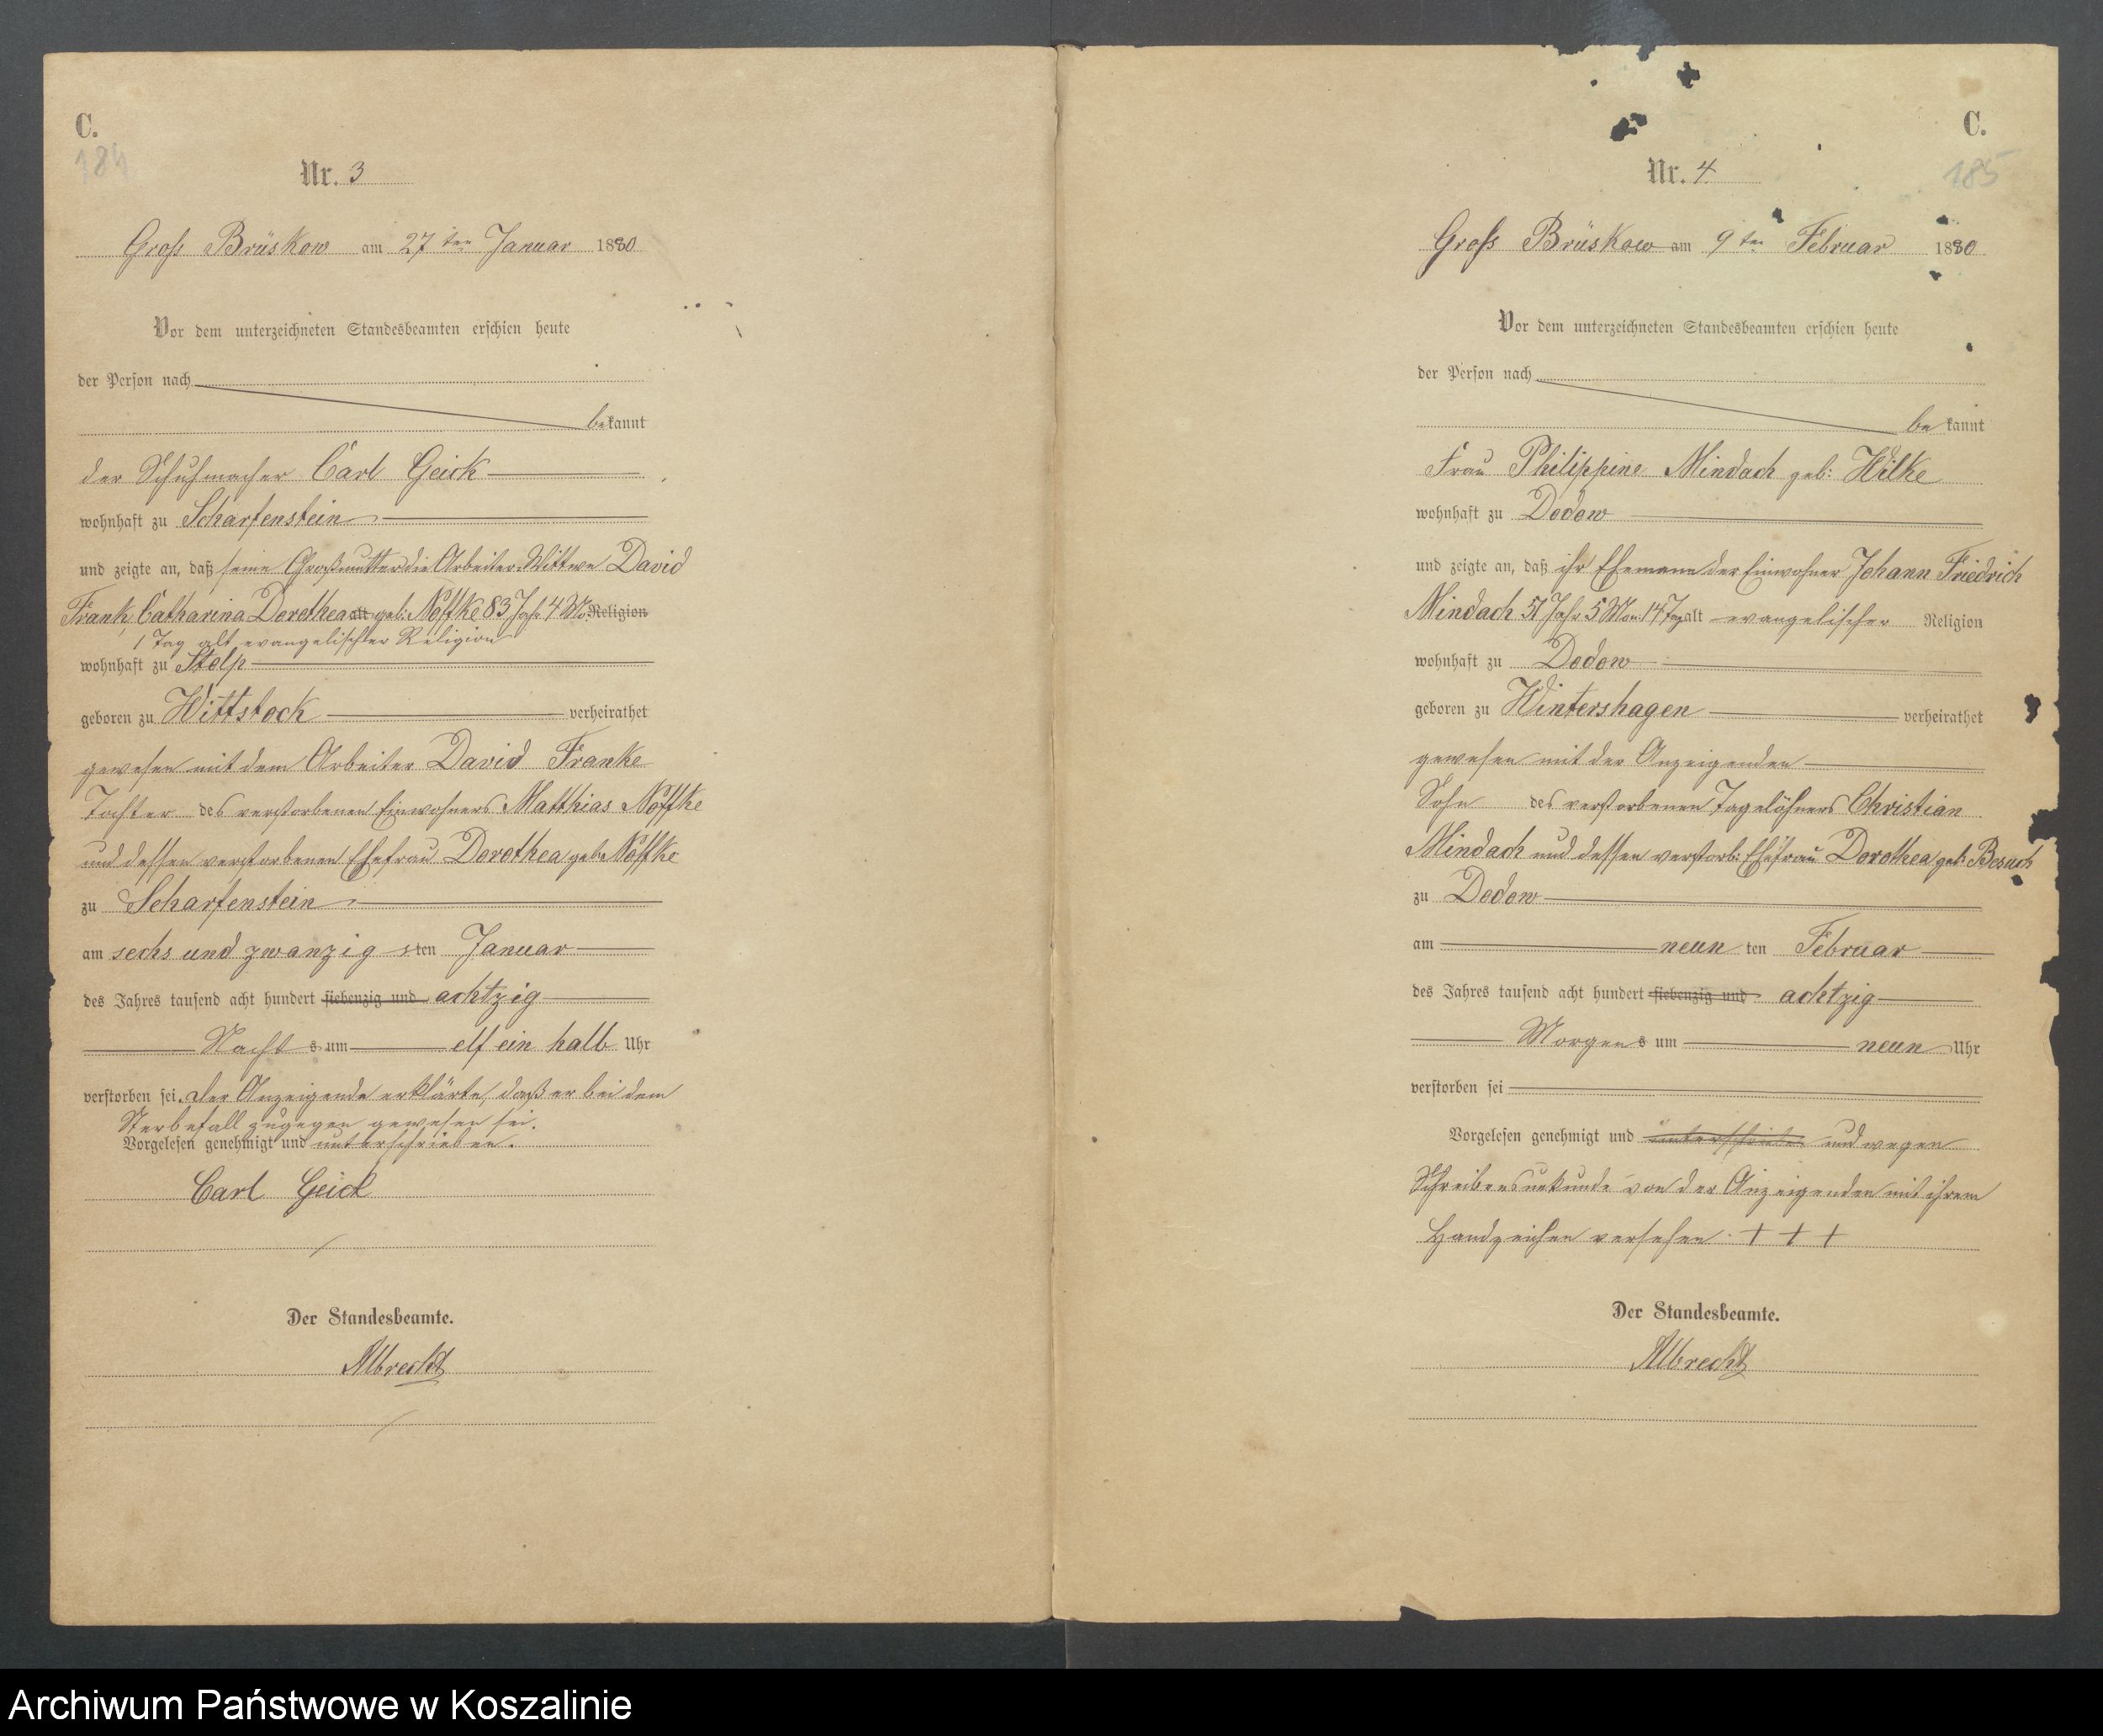 C.
184
Nr. 3
Groß Brüskow am 27ten Januar 1880
Vor dem unterzeichneten Standesbeamten erschien heute
der Person nach
bekannt
der Schuhmacher Carl Geick
wohnhaft zu Scharfenstein
und zeigte an, daß seine Großmutter die Arbeiter-Wittwe David
Frank, Catharina Dorothea alt geb: Noffke 83 Jahr 4 Mo. Religion
1 Tag alt evangelischer Religion
wohnhaft zu Stolp
geboren zu Wittstock verheirathet
gewesen mit dem Arbeiter David Franke
Tochter des verstorbenen Einwohners Matthias Noffke
und dessen verstorbenen Ehefrau Dorothea geb: Noffke
zu Scharfenstein
am sechs und zwanzigsten Januar
des Jahres tausend acht hundert siebenzig und achtzig
Nachts um elf ein halb Uhr
verstorben sei. Der Anzeigende erklärte, daß er bei dem
Sterbefall zugegen gewesen sei.
Vorgelesen genehmigt und unterschrieben.
Carl Geick
Der Standesbeamte.
Albrecht
C.
185
Nr. 4
Groß Brüskow am 9ten Februar 1880
Vor dem unterzeichneten Standesbeamten erschien heute
der Person nach
bekannt
Frau Philippine Mindach geb: Wilke
wohnhaft zu Dodow
und zeigte an, daß ihr Ehemann der Einwohner Johann Friedrich
Mindach 51 Jahr 5 Mon: 14 Tag alt evangelischer Religion
wohnhaft zu Dodow
geboren zu Wintershagen verheirathet
gewesen mit der Anzeigenden
Sohn des verstorbenen Tagelöhners Christian
Mindach und dessen verstorb: Ehefrau Dorothea geb: Besuch
zu Dodow
am neunten Februar
des Jahres tausend acht hundert siebenzig und achtzig
Morgens um neun Uhr
verstorben sei
Vorgelesen genehmigt und unterschrieben und wegen
Schreibensunkunde von der Anzeigenden mit ihrem
Handzeichen versehen. + + +
Der Standesbeamte.
Albrecht
Archiwum Państwowe w Koszalinie